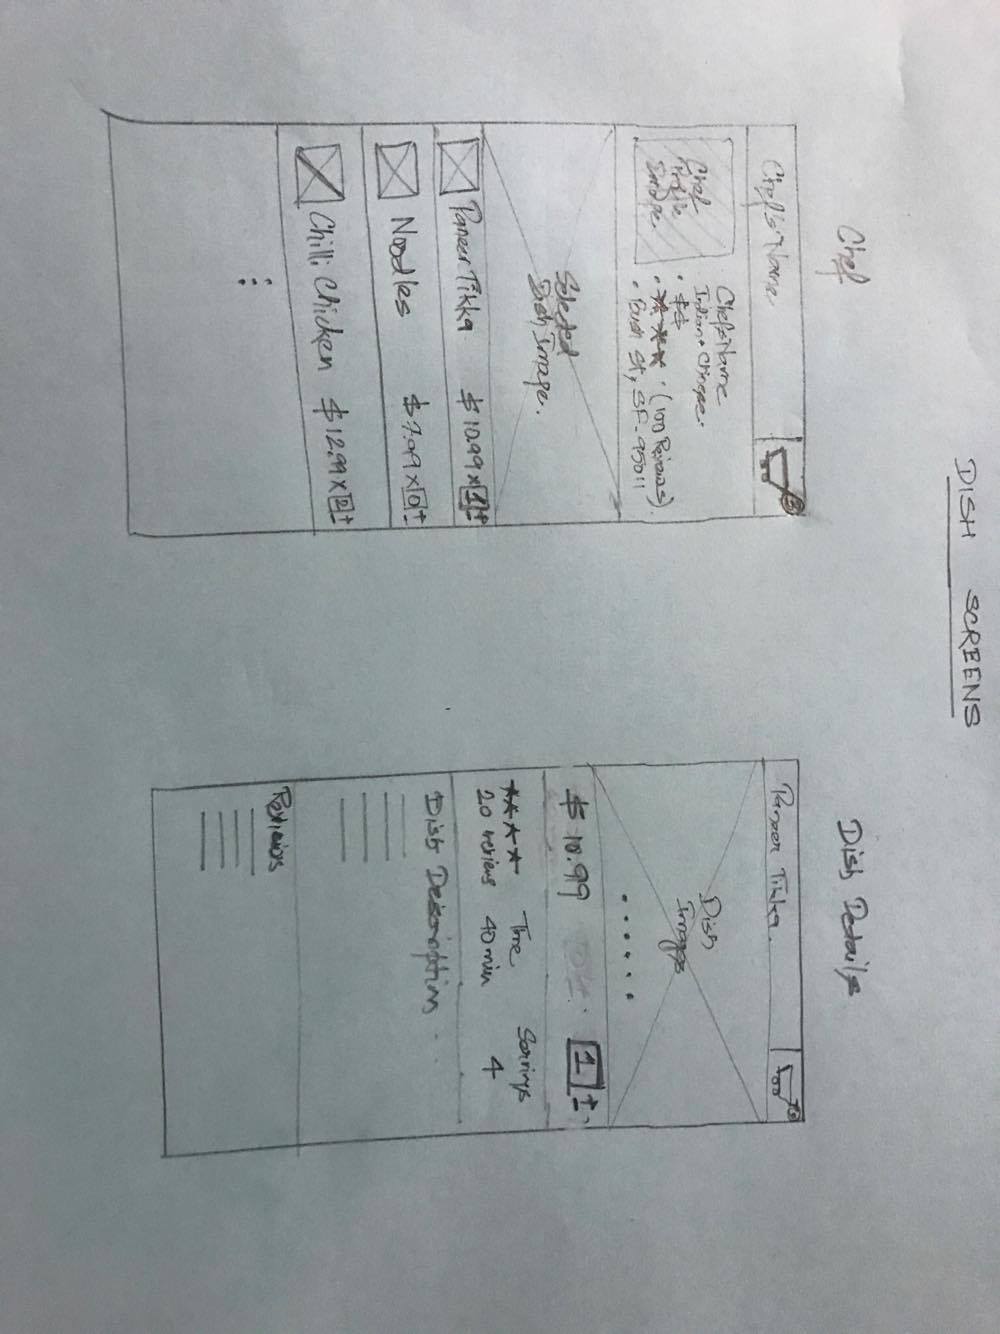 DISH SCREENS
Chef
Chef's Name
Chef
Profile
Image
Chef's Name
Indian + Chinese.
• $$
• ★★★★ • (100 Reviews)
• Bush St, SF - 95011
Selected
Dish Image.
Paneer Tikka $10.99 x 1 ±
Noodles $7.99 x 0 ±
Chilli Chicken $12.99 x 2 ±
Dish Details
Paneer Tikka.
Dish
Images
$10.99 1 ±
★★★★ Time Servings
20 reviews 40 min 4
Dish Description
Reviews